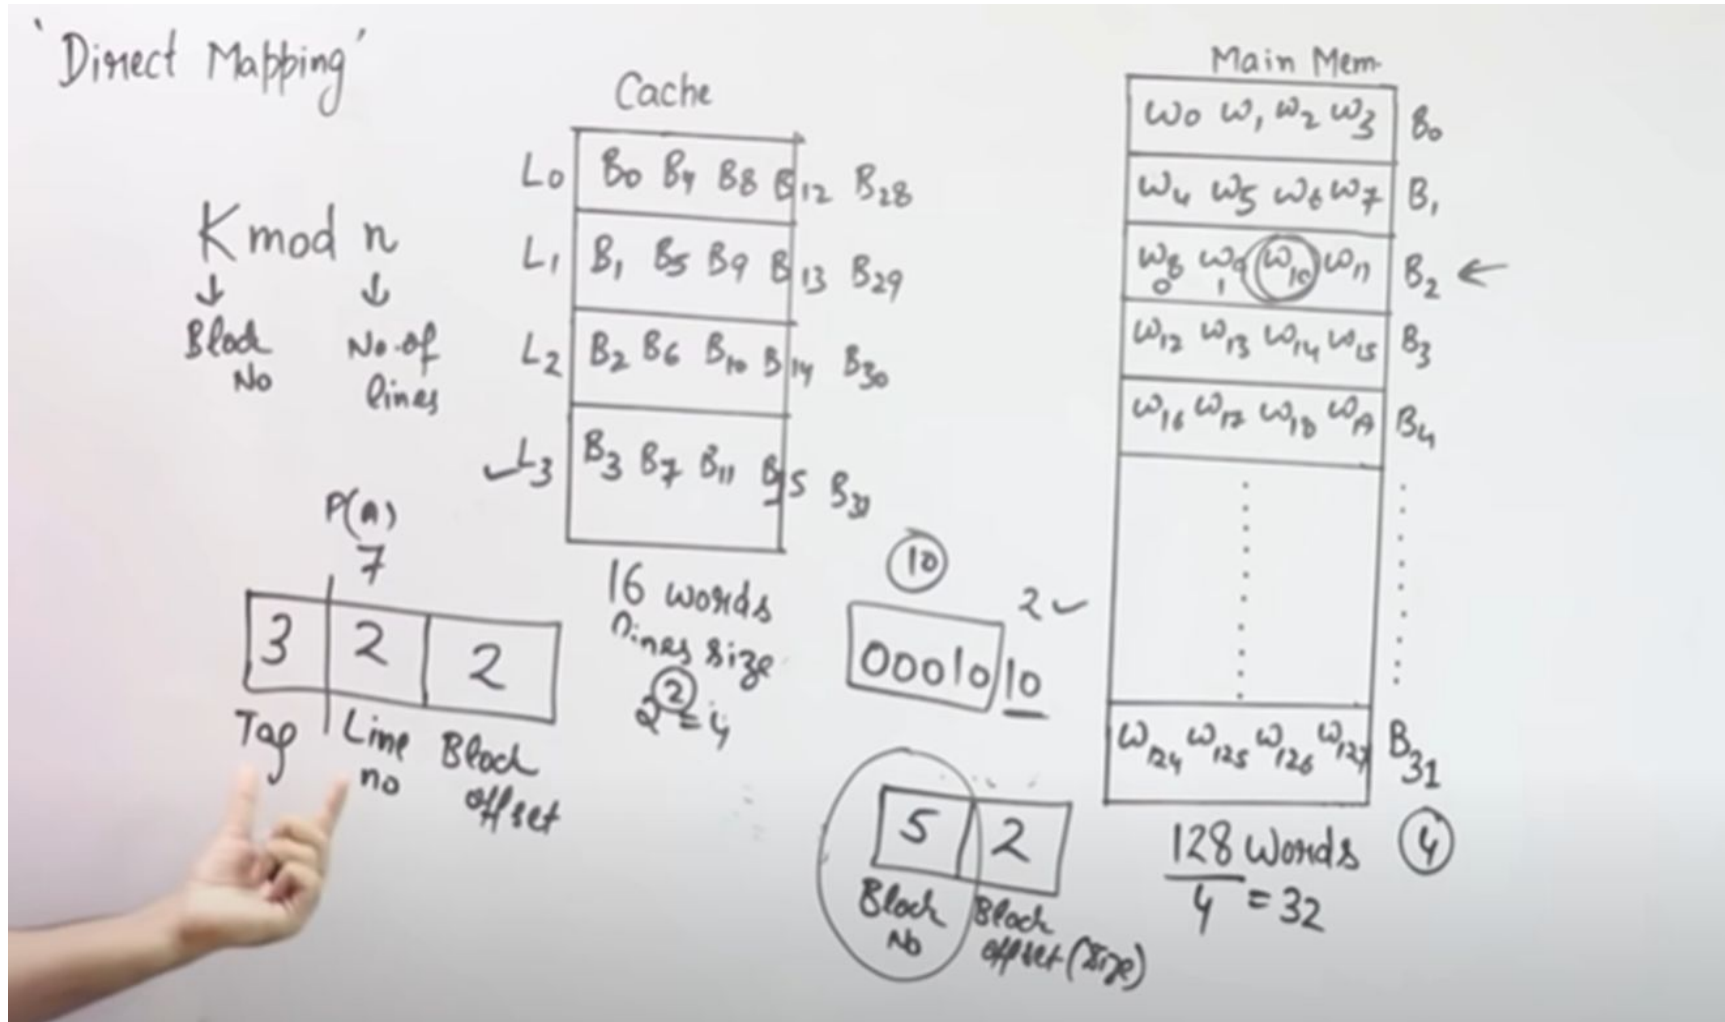 'Direct Mapping'
K mod n
Block No
No. of lines
Cache
L0 B0 B4 B8 B12 B28
L1 B1 B5 B9 B13 B29
L2 B2 B6 B10 B14 B30
L3 B3 B7 B11 B15 B31
16 words
lines size
2② = 4
P(A)
7
3 2 2
Tag Line no Block offset
10
0001010
2 ✓
5 2
Block No
Block offset (Size)
Main Mem.
W0 W1 W2 W3 B0
W4 W5 W6 W7 B1
W8 W9 W10 W11 B2
0 1
W12 W13 W14 W15 B3
W16 W17 W18 W19 B4
W124 W125 W126 W127 B31
128 Words
4 = 32
4